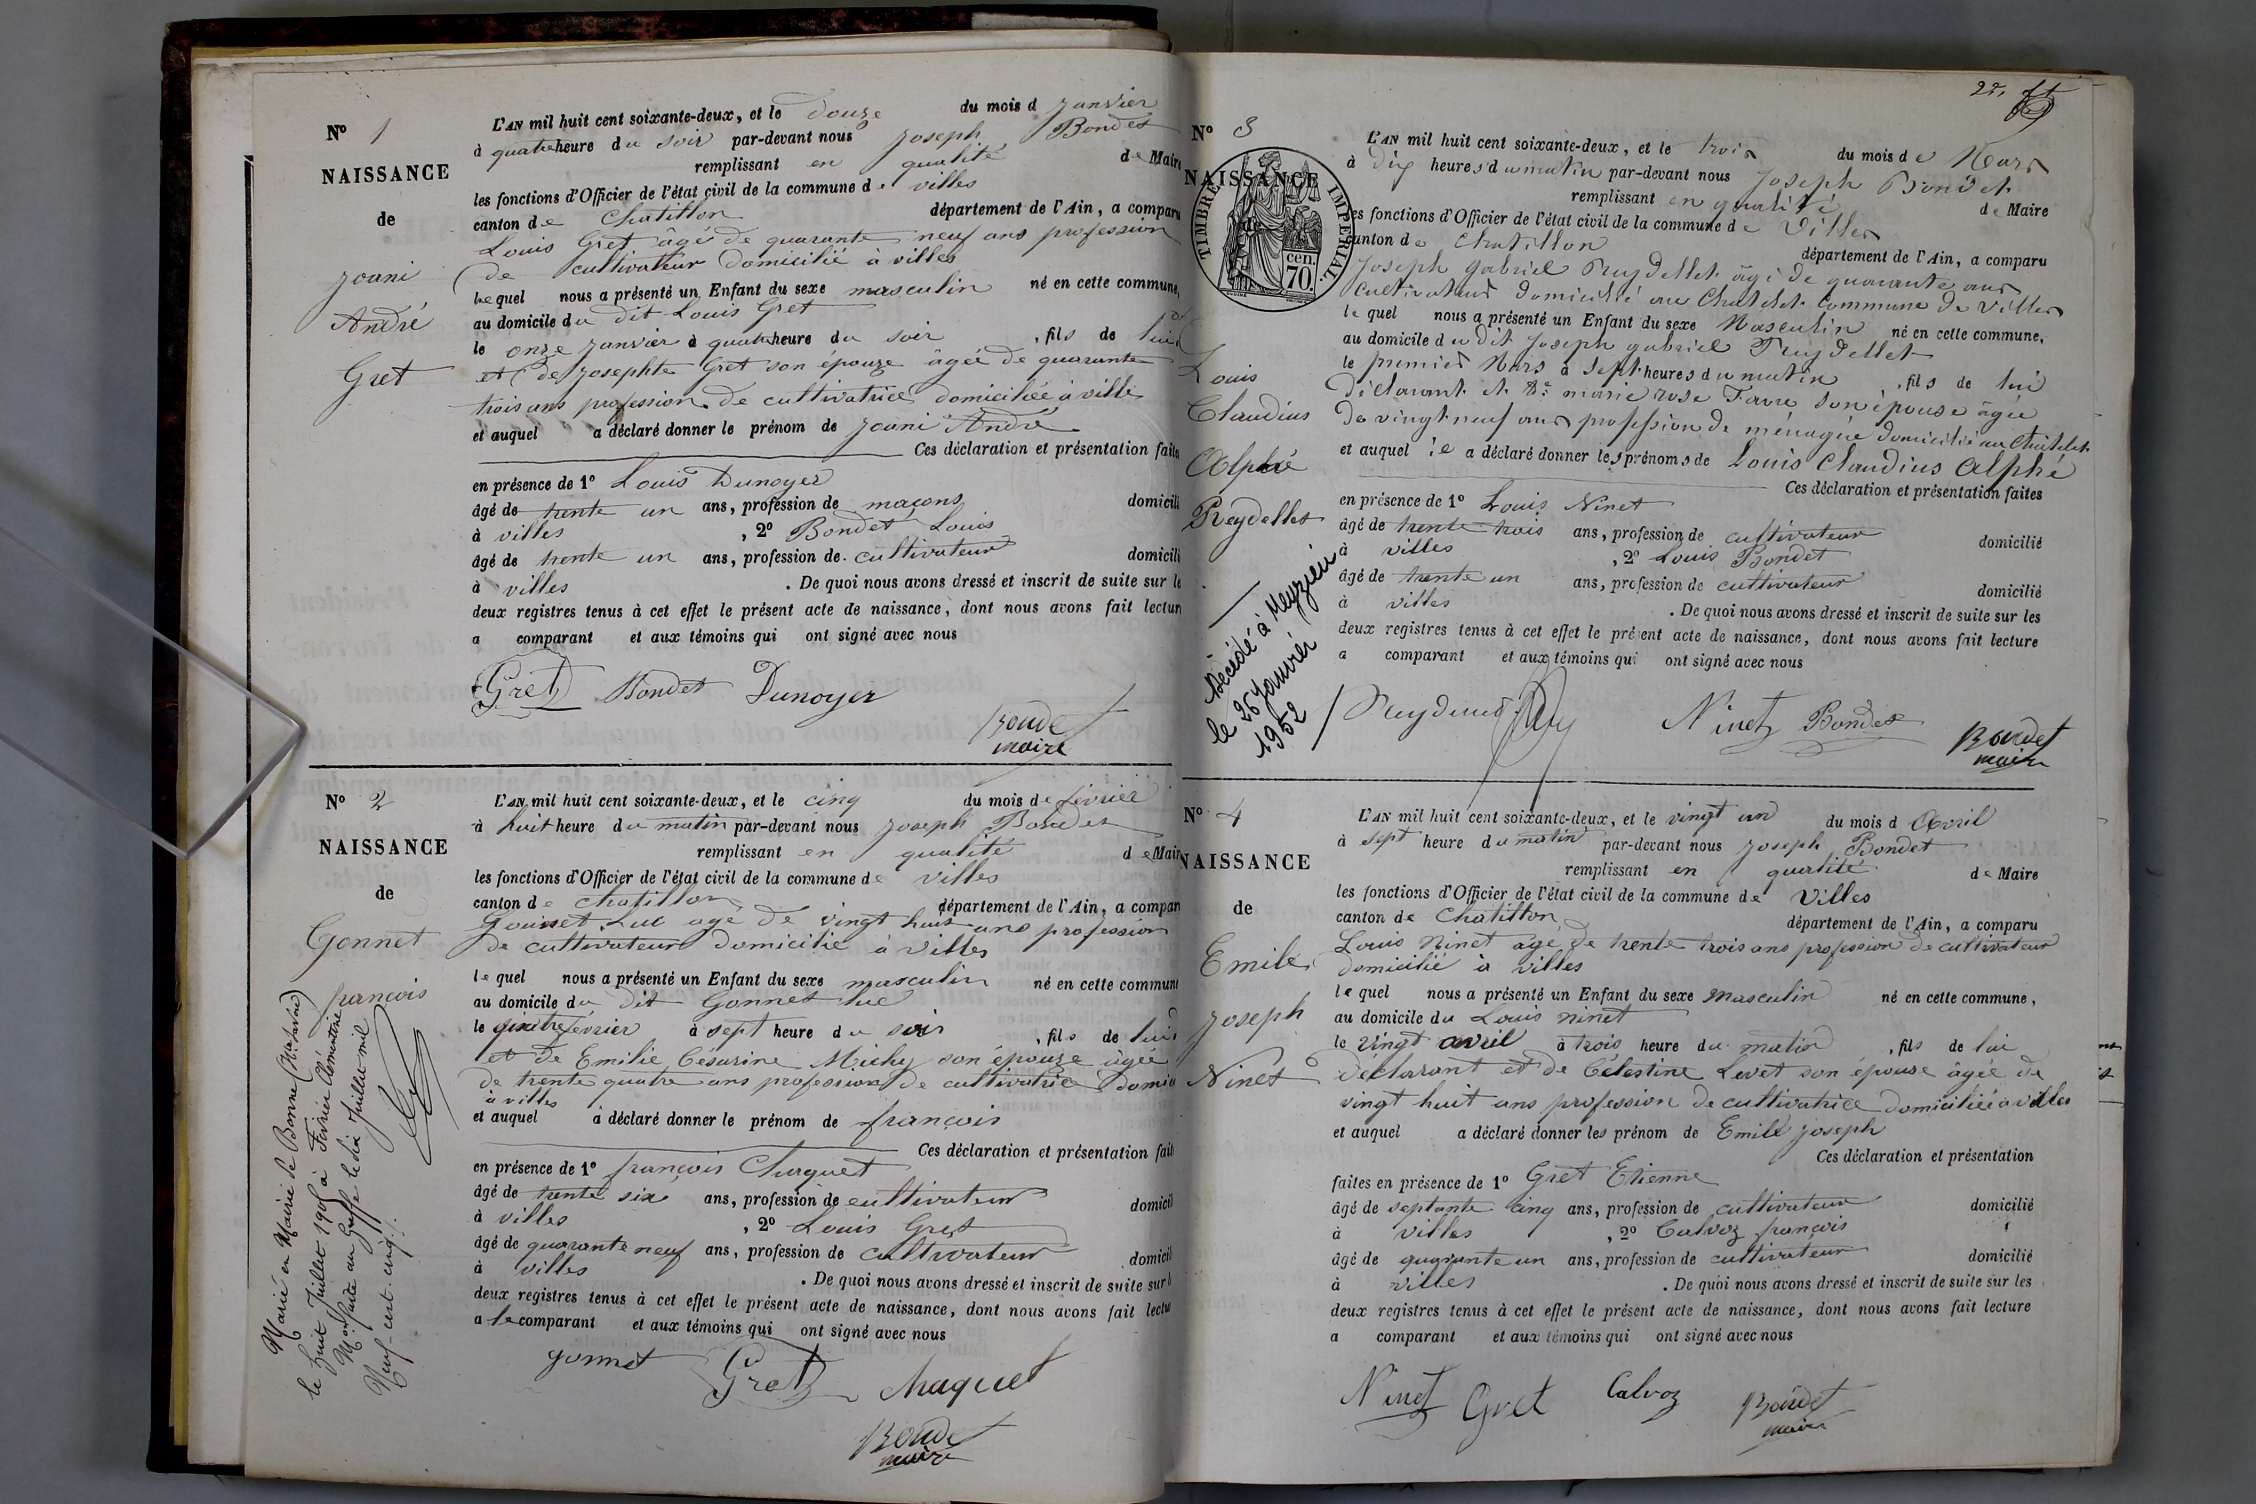 N° 1
NAISSANCE
de
Joani
André
Gret
L'AN mil huit cent soixante-deux, et le douze du mois d Janvier
à quatre heure du soir par-devant nous Joseph Bondet
remplissant en qualité de Maire
les fonctions d'Officier de l'état civil de la commune de villes
canton de Chatillon département de l'Ain, a comparu
Louis Gret âgé de quarante neuf ans profession
de cultivateur domicilié à villes
lequel nous a présenté un Enfant du sexe masculin né en cette commune,
au domicile du dit Louis Gret
le onze Janvier à quatre heure du soir , fils de lui
et de Josephte Gret son épouze âgée de quarante
trois ans profession de cultivatrice domiciliée à ville
et auquel a déclaré donner le prénom de Joani André
Ces déclaration et présentation faites
en présence de 1° Louis Dunoyer
âgé de trente un ans, profession de maçons domicili
à villes , 2° Bondet Louis
âgé de trente un ans, profession de cultivateur domicili
à villes . De quoi nous avons dressé et inscrit de suite sur le
deux registres tenus à cet effet le présent acte de naissance, dont nous avons fait lectur
a comparant et aux témoins qui ont signé avec nous
Gret Bondet Dunoyer
Bondet
maire
N° 2
NAISSANCE
de
Gonnet
françois
Marié en Mairie de Bonne (Hte Savoie)
le huit Juillet 1905 à Février Clémentine
Mon faite au Greffe le dix Juillet mil
Neuf cent cinq.
L'AN mil huit cent soixante-deux, et le cinq du mois de février
à huit heure du matin par-devant nous Joseph Bondet
remplissant en qualité de Maire
les fonctions d'Officier de l'état civil de la commune de villes
canton de Chatillon département de l'Ain, a compar
Gonnet Luc agé de vingt huit ans profession
de cultivateur domicilié à villes
lequel nous a présenté un Enfant du sexe masculin né en cette commune
au domicile du dit Gonnet luc
le quatre février à sept heure du soir , fils de lui
et de Emilie Césarine Michy son épouze âgée
de trente quatre ans profession de cultivatrice domic
à villes
et auquel à déclaré donner le prénom de françois
Ces déclaration et présentation fait
en présence de 1° françois Chaquet
âgé de trente six ans, profession de cultivateur domicil
à villes , 2° Louis Gret
âgé de quarante neuf ans, profession de cultivateur domicil
à villes . De quoi nous avons dressé et inscrit de suite sur l
deux registres tenus à cet effet le présent acte de naissance, dont nous avons fait lectu
a le comparant et aux témoins qui ont signé avec nous
gonnet Gret Chaquet
Bondet
maire
22.
N° 3
NAISSANCE
de
TIMBRE IMPÉRIAL.
cen.
70.
Louis
Claudius
Alphé
Reydellet
Décédé à Meyzieu
le 26 Janvier
1952
L'AN mil huit cent soixante-deux, et le trois du mois de Mars
à dix heures du matin par-devant nous Joseph Bondet
remplissant en qualité de Maire
les fonctions d'Officier de l'état civil de la commune de Villes
canton de Chatillon département de l'Ain, a comparu
Joseph gabriel Reydellet âgé de quarante ans
cultivateur domicilié au Chatelet commune de Villes
lequel nous a présenté un Enfant du sexe Masculin né en cette commune,
au domicile du dit Joseph gabriel Reydellet
le premier Mars à sept heures du matin , fils de lui
déclarant et de marie rose Favre son épouse âgée
de vingt neuf ans profession de ménagère domiciliée au Chatelet
et auquel il a déclaré donner les prénoms de Louis Claudius Alphé
Ces déclaration et présentation faites
en présence de 1° Louis Ninet
âgé de trente trois ans, profession de cultivateur domicilié
à villes , 2° Louis Bondet
âgé de trente un ans, profession de cultivateur domicilié
à villes . De quoi nous avons dressé et inscrit de suite sur les
deux registres tenus à cet effet le présent acte de naissance, dont nous avons fait lecture
a comparant et aux témoins qui ont signé avec nous
Ninet Bondet
Bondet
maire
N° 4
NAISSANCE
de
Emile
Joseph
Ninet
L'AN mil huit cent soixante-deux, et le vingt un du mois d Avril
à sept heure du matin par-devant nous Joseph Bondet
remplissant en qualité de Maire
les fonctions d'Officier de l'état civil de la commune de Villes
canton de Chatillon département de l'Ain, a comparu
Louis Ninet agé de trente trois ans profession de cultivateur
domicilié à villes
lequel nous a présenté un Enfant du sexe Masculin né en cette commune,
au domicile du Louis ninet
le vingt avril à trois heure du matin , fils de lui
déclarant et de Célestine Levet son épouse âgée de
vingt huit ans profession de cultivatrice domiciliée à villes
et auquel a déclaré donner les prénom de Emile Joseph
Ces déclaration et présentation
faites en présence de 1° Gret Etienne
âgé de septante cinq ans, profession de cultivateur domicilié
à villes , 2° Calvoz françois
âgé de quarante un ans, profession de cultivateur domicilié
à villes . De quoi nous avons dressé et inscrit de suite sur les
deux registres tenus à cet effet le présent acte de naissance, dont nous avons fait lecture
a comparant et aux témoins qui ont signé avec nous
Ninet Gret Calvoz Bondet
maire